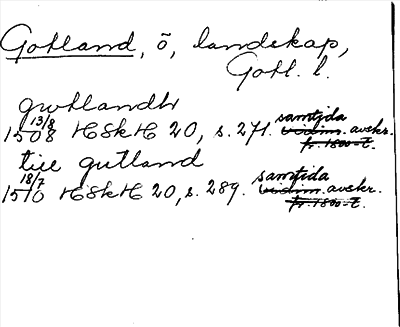 Gotland, ö, landskap,
Gotl. l.
gwtlandh
13/8
1508 HSkH 20, s. 271. samtida vidim. avskr. fr. 1800-t.
till gutland
18/7
1510 HSkH 20, s. 289. samtida vidim. avskr. fr. 1800-t.